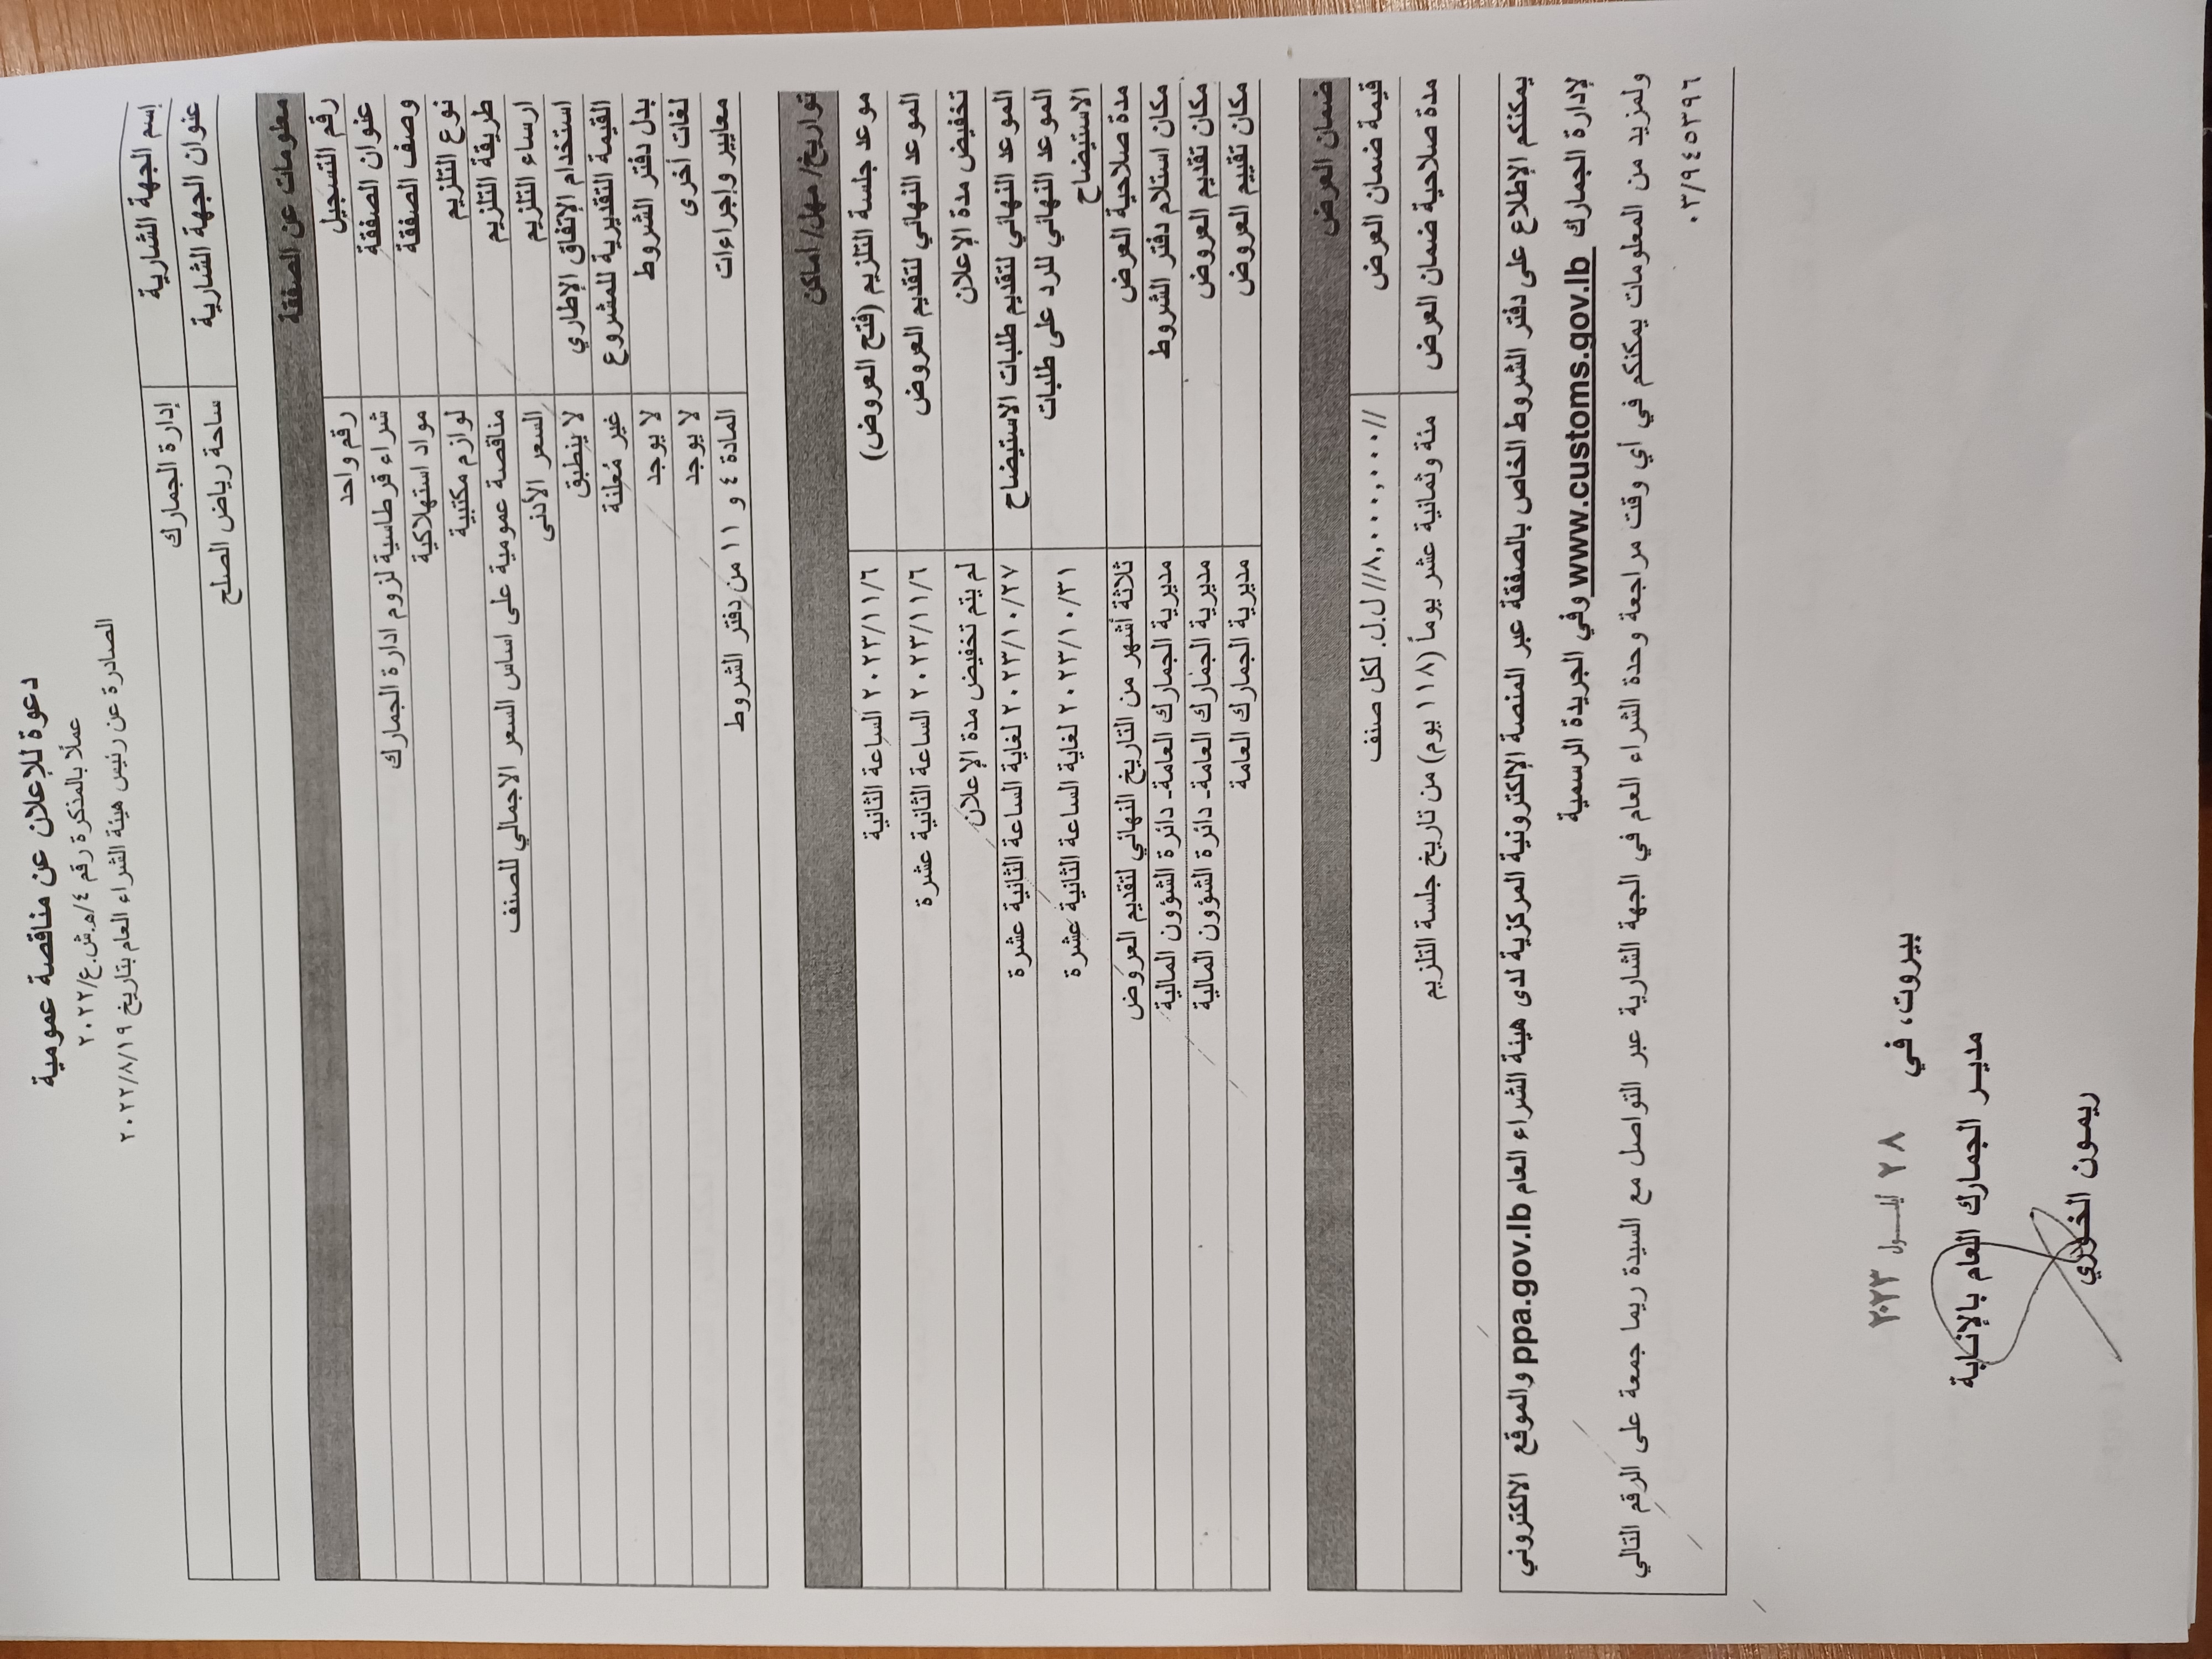 دعوة للإعلان عن مناقصة عمومية
عملًا بالمذكرة رقم ٤/ه.ش.ع/٢٠٢٢
الصادرة عن رئيس هيئة الشراء العام بتاريخ ٢٠٢٢/٨/١٩
إسم الجهة الشارية إدارة الجمارك
عنوان الجهة الشارية ساحة رياض الصلح
معلومات عن الصفقة
رقم التسجيل رقم واحد
عنوان الصفقة شراء قرطاسية لزوم ادارة الجمارك
وصف الصفقة مواد استهلاكية
نوع التلزيم لوازم مكتبية
طريقة التلزيم مناقصة عمومية على اساس السعر الاجمالي للصنف
ارساء التلزيم السعر الأدنى
استخدام الإتفاق الإطاري لا ينطبق
القيمة التقديرية للمشروع غير مُعلنة
بدل دفتر الشروط لا يوجد
لغات أخرى لا يوجد
معايير وإجراءات المادة ٤ و ١١ من دفتر الشروط
تواريخ/ مهل/ اماكن
موعد جلسة التلزيم (فتح العروض) ٢٠٢٣/١١/٦ الساعة الثانية
الموعد النهائي لتقديم العروض ٢٠٢٣/١١/٦ الساعة الثانية عشرة
تخفيض مدة الإعلان لم يتم تخفيض مدة الإعلان
الموعد النهائي لتقديم طلبات الاستيضاح ٢٠٢٣/١٠/٢٧ لغاية الساعة الثانية عشرة
الموعد النهائي للرد على طلبات ٢٠٢٣/١٠/٣١ لغاية الساعة الثانية عشرة
الاستيضاح
مدة صلاحية العرض ثلاثة أشهر من التاريخ النهائي لتقديم العروض
مكان استلام دفتر الشروط مديرية الجمارك العامة- دائرة الشؤون المالية
مكان تقديم العروض مديرية الجمارك العامة- دائرة الشؤون المالية
مكان تقييم العروض مديرية الجمارك العامة
ضمان العرض
قيمة ضمان العرض //٨,٠٠٠,٠٠٠// ل.ل. لكل صنف
مدة صلاحية ضمان العرض مئة وثمانية عشر يوماً (١١٨ يوم) من تاريخ جلسة التلزيم
يمكنكم الإطلاع على دفتر الشروط الخاص بالصفقة عبر المنصة الإلكترونية المركزية لدى هيئة الشراء العام ppa.gov.lb والموقع الالكتروني
لإدارة الجمارك www.customs.gov.lb وفي الجريدة الرسمية
ولمزيد من المعلومات يمكنكم في أي وقت مراجعة وحدة الشراء العام في الجهة الشارية عبر التواصل مع السيدة ريما جمعة على الرقم التالي
٠٣/٩٤٥٣٩٦
بيروت، في ٢٨ أيلول ٢٠٢٣
مدير الجمارك العام بالإنابة
ريمون الخوري